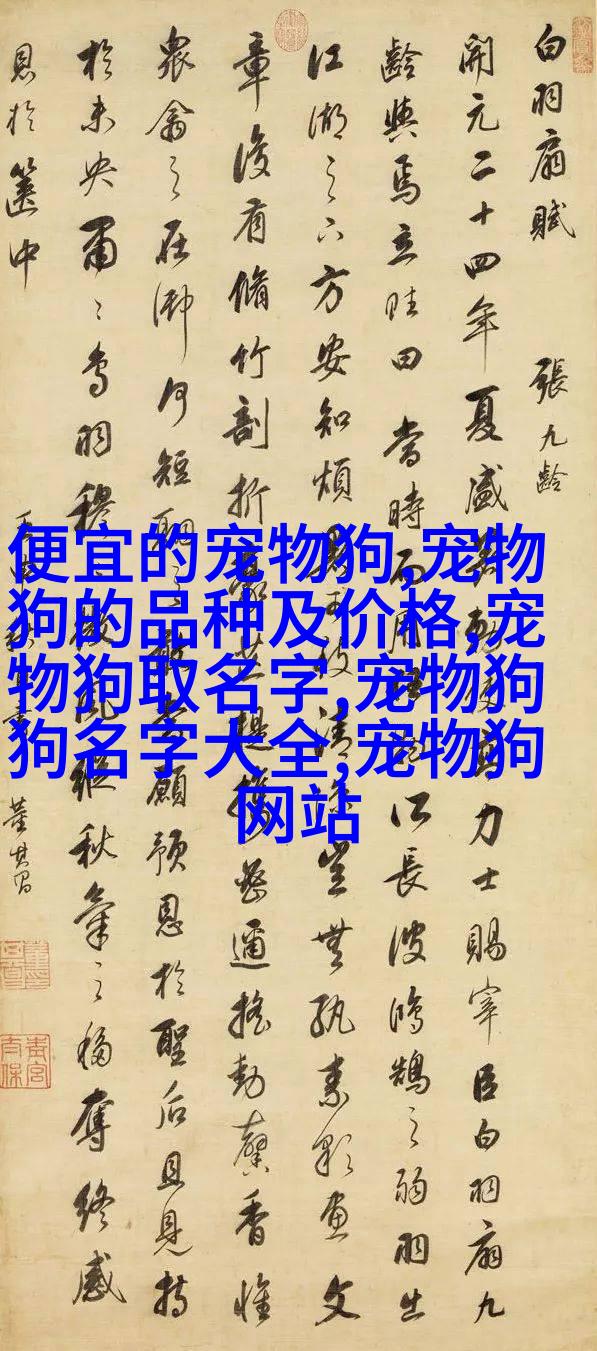 白羽扇賦 張九齡
開元二十四年夏盛力士賜宰臣白羽扇九
齡與焉立賦曰當時而用江長波鴻鵠之弱羽出
江湖之六方安知煩清豈無紈素彩畫文
章復有脩竹剖析提密邇搖動馨香惟
衆禽之在御何短翮之顧預恩於聖后且見持
於未央鳥羽穆縱秋氣之移奪終感
恩於篋中
董其昌
便宜的宠物狗,宠物
狗的品种及价格,宠
物狗取名字,宠物狗
狗名字大全,宠物狗
网站